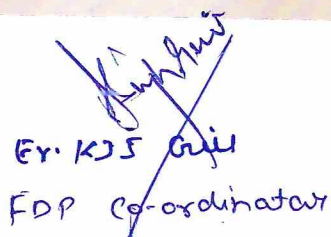 Er. KJS Gill
FDP Co-ordinator